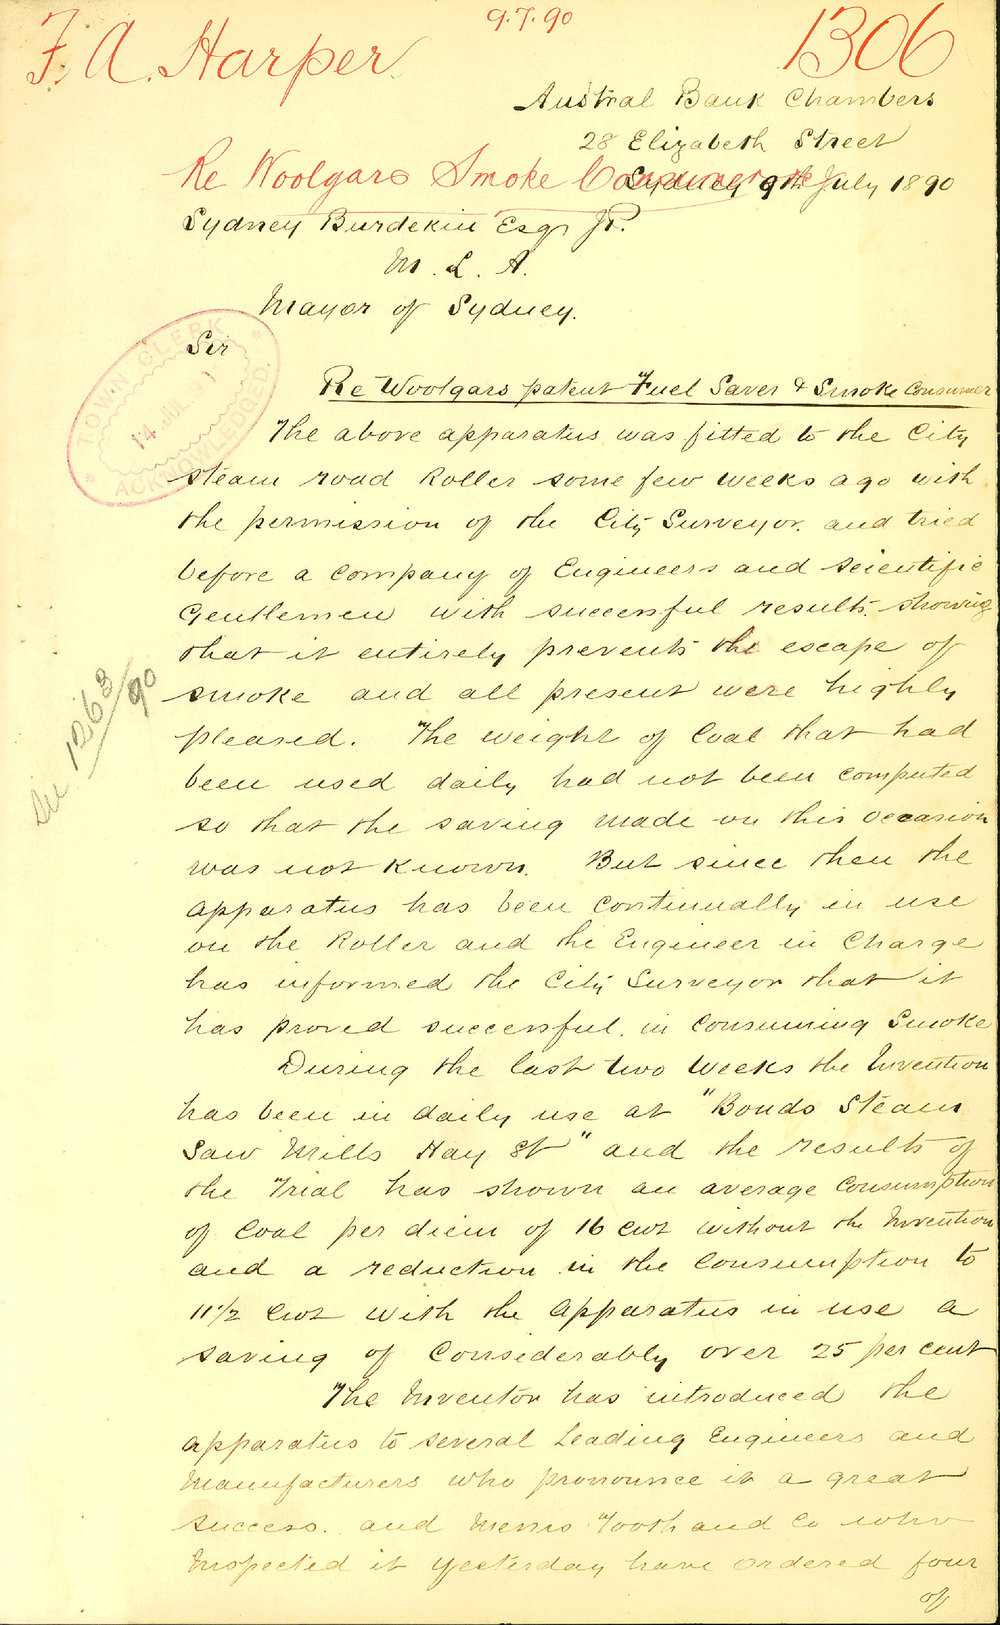 9.7.90
F. A. Harper
1306
Austral Bank Chambers
28 Elizabeth Street
Re Woolgars Smoke Consumer
Sydney 9th July 1890
Sydney Burdekin Esqr JP.
M. L. A.
Mayor of Sydney.
Sir
TOWN CLERK
14 JUL
ACKNOWLEDGED.
Re Woolgars patent Fuel Saver & Smoke Consumer
The above apparatus was fitted to the City
steam road Roller some few weeks ago with
the permission of the City Surveyor. and tried
before a company of Engineers and scientific
Gentlemen with successful results. showing
that it entirely prevents the escape of
smoke and all present were highly
pleased. The weight of Coal that had
been used daily had not been computed
so that the saving made on this occasion
was not known. But since then the
apparatus has been continually in use
on the Roller and the Engineer in Charge
has informed the City Surveyor that it
has proved successful. in Consuming Smoke
During the last two weeks the Invention
has been in daily use at "Bonds Steam
Saw Mills Hay St" and the results of
the Trial has shown an average Consumption
of Coal per diem of 16 cwt without the Invention
and a reduction in the Consumption to
11 1/2 Cwt with the apparatus in use a
saving of Considerably over 25 per cent
The Inventor has introduced the
apparatus to several Leading Engineers and
Manufacturers who pronounce it a great
success. and Messrs Tooth and Co who
Inspected it yesterday have ordered four
of
1263/90